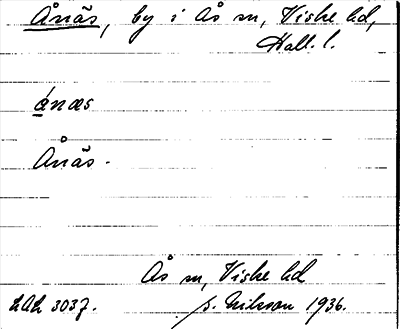 Ånäs, by i Ås sn, Viske hd,
Hall. l.
ánæs
Ånäs.
Ås sn, Viske hd
LAL 3037.
S. Nilsson 1936.